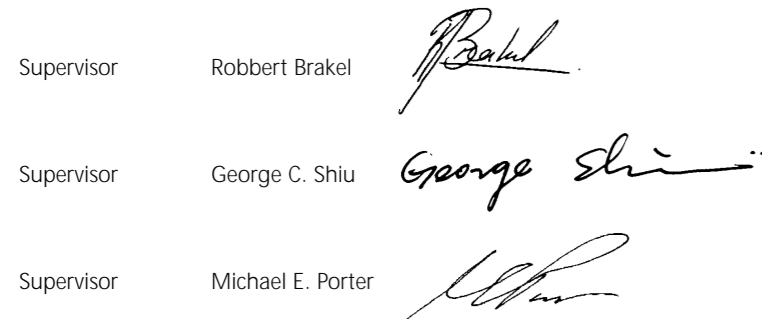 Supervisor Robbert Brakel RBrakel
Supervisor George C. Shiu George Shiu
Supervisor Michael E. Porter